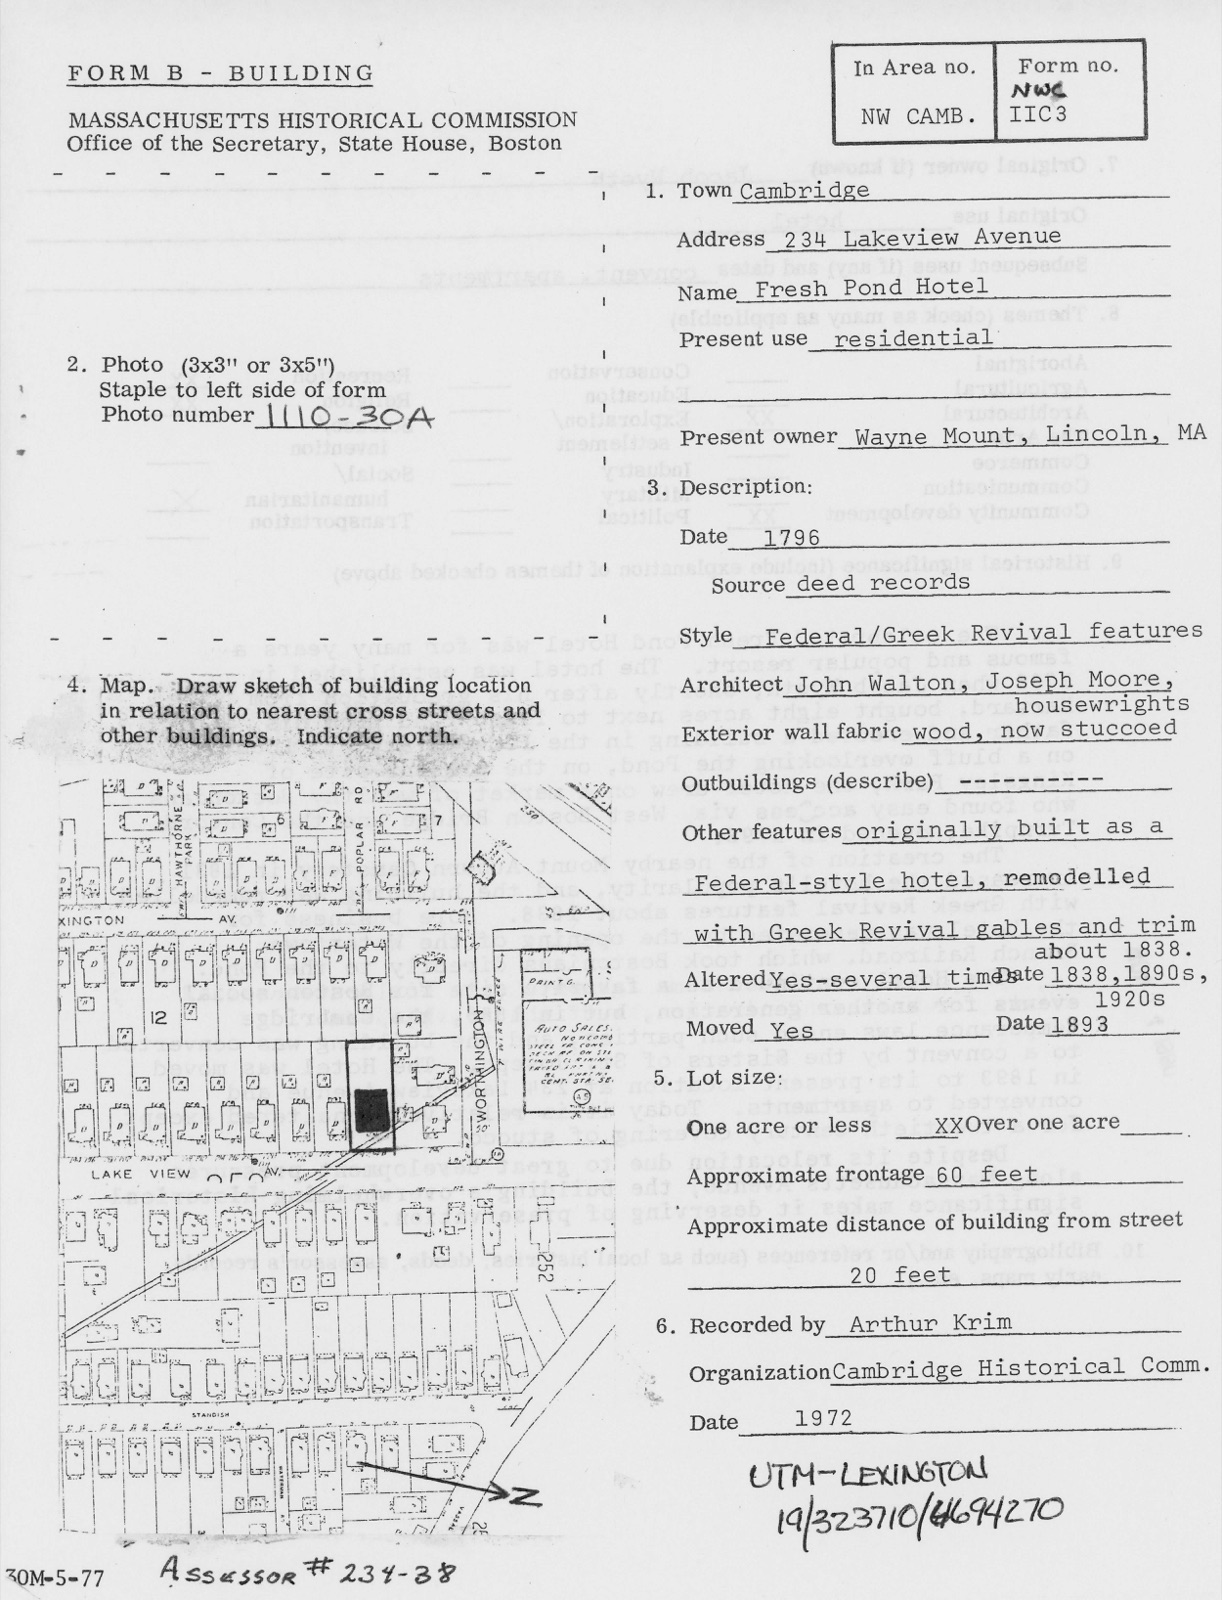 FORM B - BUILDING
In Area no.
Form no.
NWC
NW CAMB.
IIC3
MASSACHUSETTS HISTORICAL COMMISSION
Office of the Secretary, State House, Boston
1. Town Cambridge
Address 234 Lakeview Avenue
Name Fresh Pond Hotel
Present use residential
Present owner Wayne Mount, Lincoln, MA
2. Photo (3x3" or 3x5")
Staple to left side of form
Photo number 1110-30A
3. Description:
Date 1796
Source deed records
Style Federal/Greek Revival features
Architect John Walton, Joseph Moore,
housewrights
Exterior wall fabric wood, now stuccoed
Outbuildings (describe) ----------
Other features originally built as a
Federal-style hotel, remodelled
with Greek Revival gables and trim
about 1838.
Altered Yes-several times Date 1838,1890s,
1920s
Moved Yes Date 1893
4. Map. Draw sketch of building location
in relation to nearest cross streets and
other buildings. Indicate north.
HAWTHORNE PARK
POPLAR RD
6
7
XINGTON AV.
12
PRINT'G.
AUTO SALES.
WORTHINGTON
50'
LAKE VIEW AV.
252
STANDISH
Z
5. Lot size:
One acre or less XX Over one acre
Approximate frontage 60 feet
Approximate distance of building from street
20 feet
6. Recorded by Arthur Krim
Organization Cambridge Historical Comm.
Date 1972
UTM-LEXINGTON
19/323710/4694270
30M-5-77
ASSESSOR # 234-38